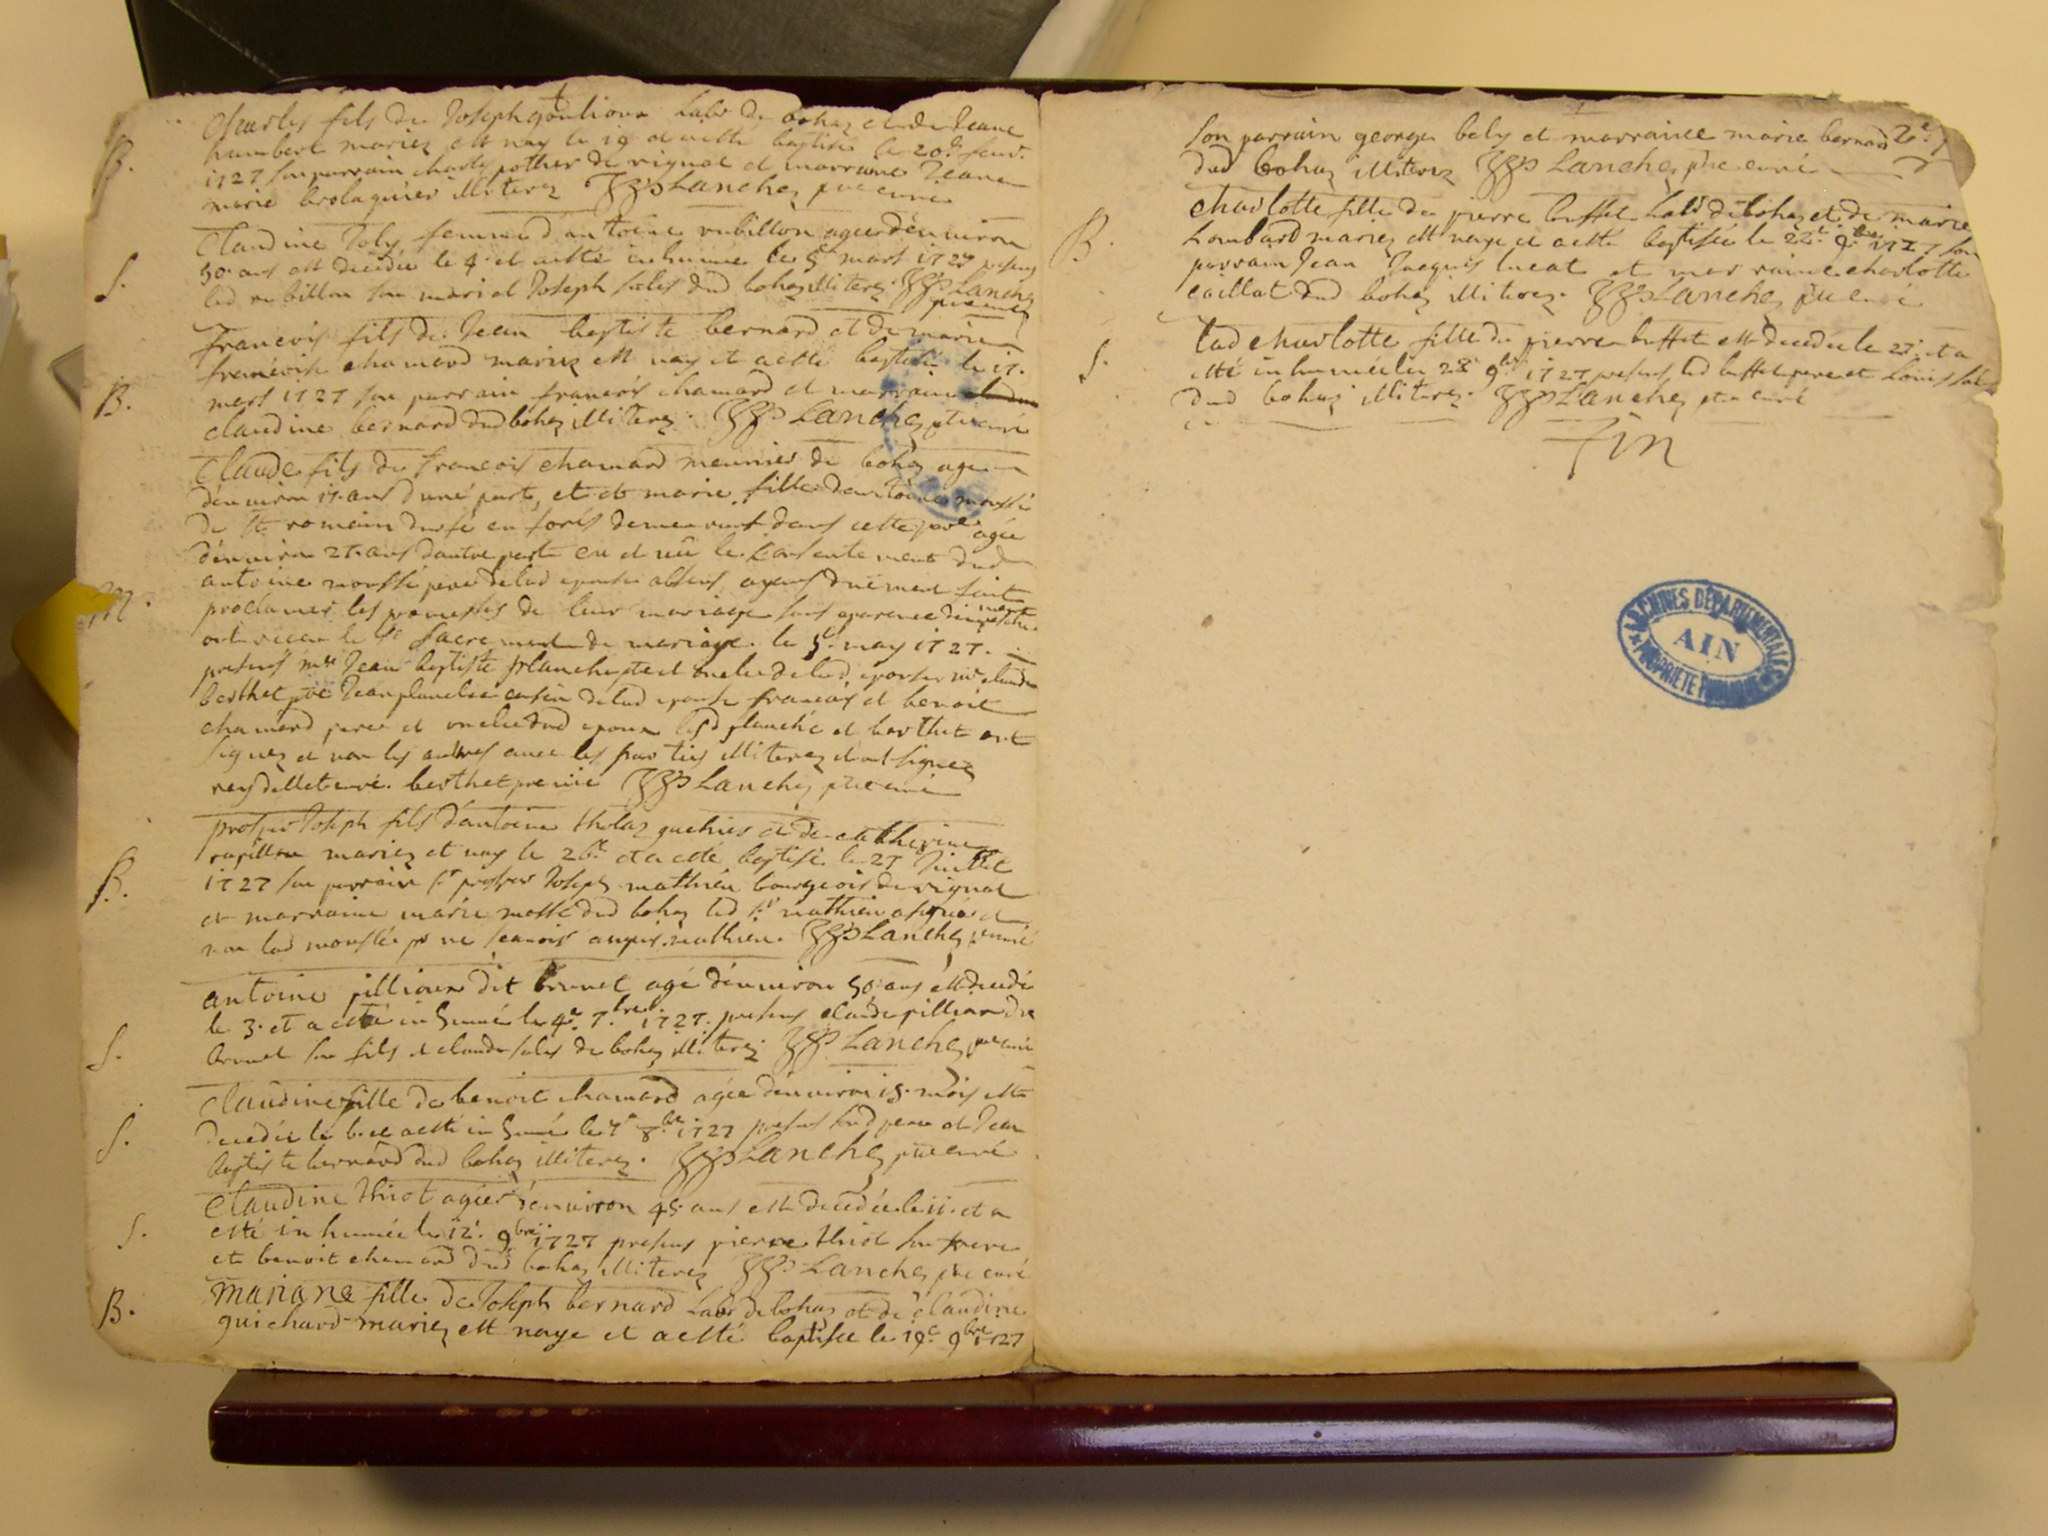 B.
Charles fils de Joseph goulioux labr de bohaz et de Jeane
humbert mariez est nay le 19 et a esté baptisé le 20e feuv.
1727 son parrain charle pother de rignat et marraine Jeane
marie brolaquier illiterez Lanchez ptre curé
S.
Claudine Joly femme d'antoine rubillon agée d'énuiron
50. ans est decedée le 4. et a esté inhumée le 5e mars 1727 presens
led rubillon son mari et Joseph sales dud bohaz illiterez. Lanchez
ptre curé
B.
francois fils de Jean baptiste bernard et de marie
francoise chamard mariez est nay et a esté baptisé le 17.
mars 1727 son parrain francois chamard et marraine
claudine bernard dud bohaz illiterez. Lanchez ptre curé
M.
Claude fils de francois chamard meunier de bohaz agé
dénuiron 17. ans d'une part, et de marie fille d'antoine moussé
de St romain durfé en forés demeurant dans cette pare agée
dénuiron 27. ans d'autre part eu et uû le consentement dud
antoine moussé pere de lad epouse absent, ayant duëment fait
proclamer les promesses de leur mariage sans aparence d'empesche
ment
ont receu le St Sacrement de mariage. le 5e. may 1727.
presens mre Jean baptiste planche ptre et oncle de lad epouse mr claude
berthet ptre Jean planche cousin de lad epouse francois et benoit
chamard pere et oncle dud epoux lesd planché et berthet ont
signez et non les autres auec les parties illiterez et ont signez
berthet Lanchez ptre curé
B.
prosper Joseph fils d'antoine tholaz et de catherine
rapillon mariez est nay le 26e et a esté baptisé le 27 Juillet
1727 son parrain sr prosper Joseph mathieu bourgeois de rignat
et marraine marie mosse dud bohaz led sr mathieu a signé et
non lad mossée pr ne scauoir mathieu. Lanchez ptre curé
S.
antoine pillioux dit brunet agé dénuiron 50. ans est decedé
le 3. et a esté inhumé le 4e 7.bre 1727. presens claude pillioux dit
brunet son fils et claude sales de bohaz illiterez Lanchez ptre curé
S.
Claudine fille de benoit chamard agée dénuiron 15. mois est
decedée le 6. et a esté inhumée le 7e 8bre 1727 presens sond pere et Jean
baptiste bernard dud bohaz illiterez. Lanchez ptre curé
S.
Claudine thiot agée dénuiron 45. ans est decedée le 11. et a
esté inhumée le 12e. 9bre 1727 presens pierre thiot son frere
et benoit chamard dud bohaz illiterez Lanchez ptre curé
B.
Mariane fille de Joseph bernard labr de bohaz et de claudine
guichard mariez est naye et a esté baptisée le 19e 9bre 1727
Son parrain george bely et marraine marie bernard
dud bohaz illiterez Lanchez ptre curé
B.
Charlotte fille de pierre buffet labr de bohaz et de marie
Lombard mariez est naye et a esté baptisée le 22e 9bre 1727 son
parrain Jean Jacques lucat et marraine charlotte
caillat dud bohaz illiterez. Lanchez ptre curé
S.
Lad charlotte fille de pierre buffet est decedée le 27. et a
esté inhumée le 28e 9bre 1727 presens led buffet pere et Louis
dud bohaz illiterez. Lanchez ptre curé
Fin
ARCHIVES DÉPARTEMENTALES
AIN
PROPRIÉTÉ PUBLIQUE